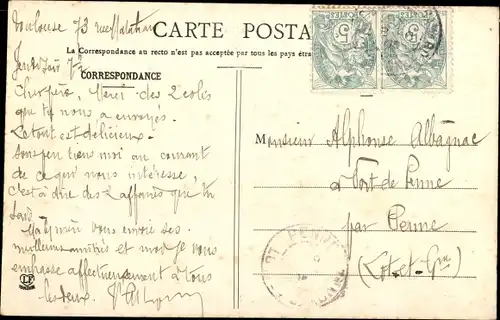 Toulouse 73
CARTE POSTA
La Correspondance au recto n'est pas acceptée par tous les pays étran
CORRESPONDANCE
Merci des 2 colis
que tu nous a envoyés.
Le tout est délicieux.
tiens moi au courant
de ce qui nous intéresse,
c'est à dire des 2 affaires que tu
sais.
vous envoie ses
meilleures amitiés et moi je vous
embrasse affectueusement à tous
les deux.
Monsieur Alphonse Albagnac
à Port de Penne
par Penne
(Lot-et-Gne)
5
5
PENNE
LOT